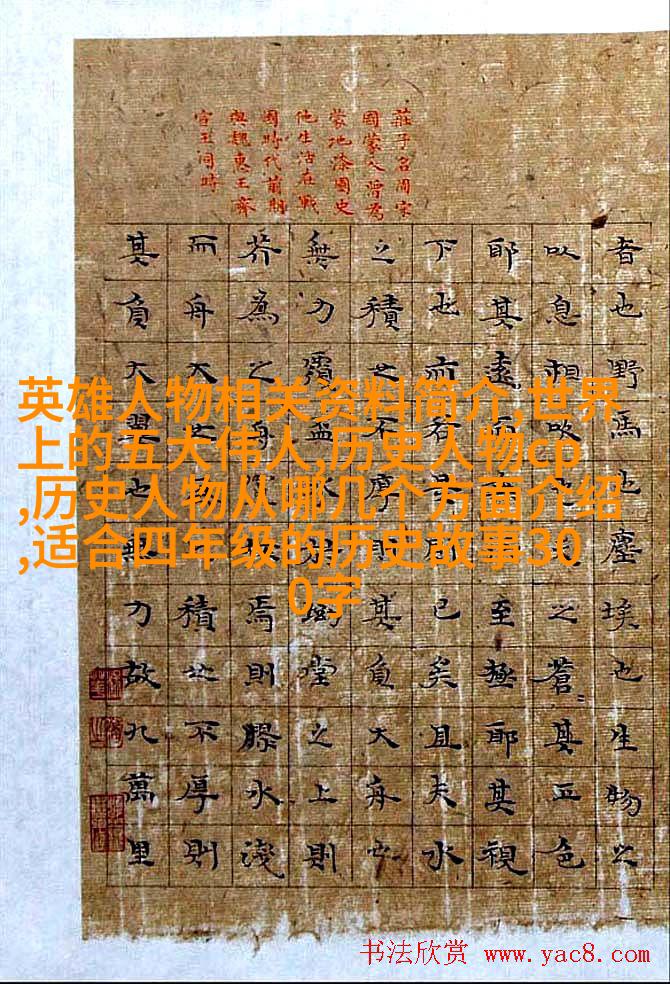 莊子名周宋
國蒙人曾為
蒙地漆園史
他生活在戰
國時代前期
與魏惠王齊
宣王同時
者也野馬也塵埃也生物之
以息相吹也天之蒼〻其正色
耶其遠而無所至極耶其視
下也而若是則已矣且夫水
之積也不厚則其負大舟也
無力覆盃水於坳堂之上則
芥為之舟置杯焉則膠水淺
而舟大也風之積也不厚則
其負大翼也無力故九萬里
英雄人物相关资料简介,世界
上的五大伟人,历史人物cp
,历史人物从哪几个方面介绍
,适合四年级的历史故事30
0字
书法欣赏 www.yac8.com